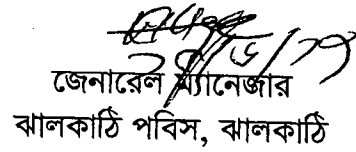 জেনারেল ম্যানেজার
ঝালকাঠি পবিস, ঝালকাঠি